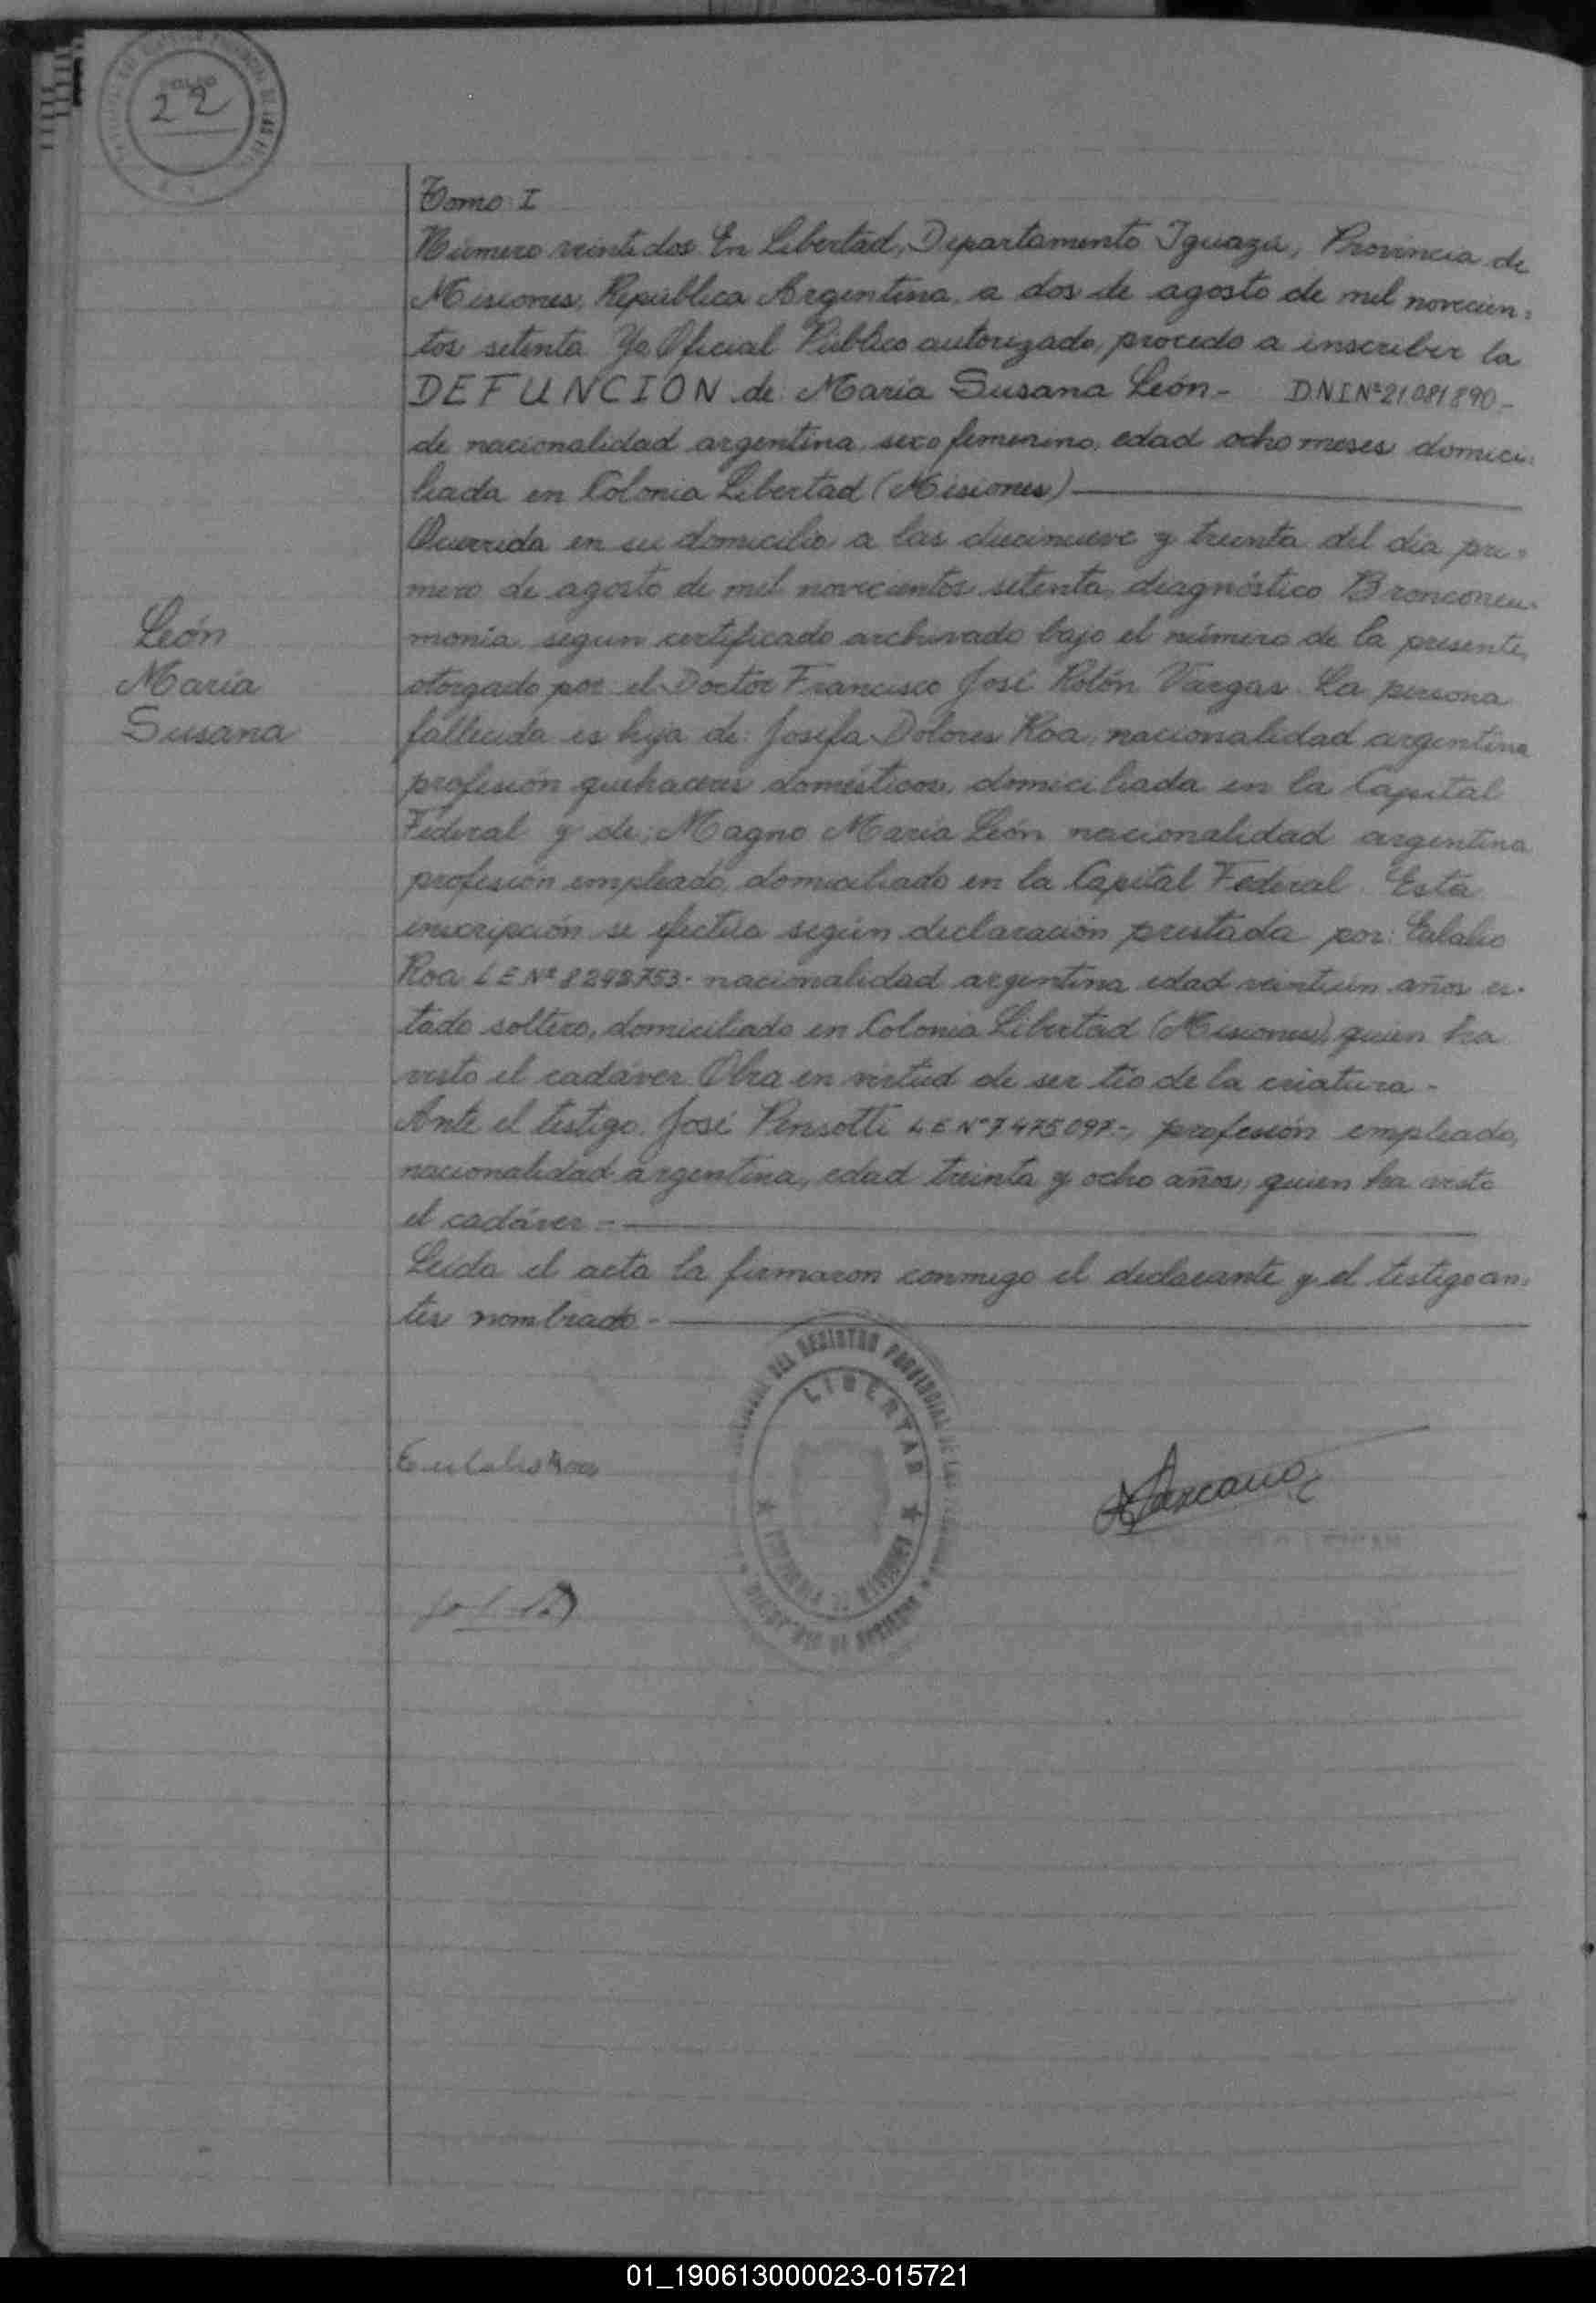 FOLIO
22
Tomo I
Número veintidos. En Libertad, Departamento Iguazú, Provincia de
Misiones, República Argentina, a dos de agosto de mil novecien-
tos setenta. Yo Oficial Público autorizado, procedo a inscribir la
DEFUNCION de: María Susana León- D.N.I.Nº21.081.890-
de nacionalidad argentina, sexo femenino, edad ocho meses domici-
liada en Colonia Libertad (Misiones)
Ocurrida en su domicilio a las diecinueve y treinta del día pri-
mero de agosto de mil novecientos setenta, diagnóstico Bronconeu-
León
monía, según certificado archivado bajo el número de la presente,
María
otorgado por el Doctor Francisco José Rolón Vargas. La persona
Susana
fallecida es hija de: Josefa Dolores Roa, nacionalidad argentina
profesión quehaceres domésticos, domiciliada en la Capital
Federal y de: Magno María León nacionalidad argentina
profesión empleado, domiciliado en la Capital Federal. Esta
inscripción se efectúa según declaración prestada por: Eulalio
Roa LE Nº 8242753- nacionalidad argentina edad veintiún años es-
tado soltero, domiciliado en Colonia Libertad (Misiones), quien ha
visto el cadáver. Obra en virtud de ser tío de la criatura-
Ante el testigo José Pensotti L E Nº7475097-, profesión empleado,
nacionalidad argentina, edad treinta y ocho años, quien ha visto
el cadáver-
Leída el acta la firmaron conmigo el declarante y el testigo an-
tes nombrado-
DEL REGISTRO PROVINCIAL DE LAS PERSONAS
LIBERTAD
PROVINCIA DE MISIONES
Eulalio Roa
01_190613000023-015721